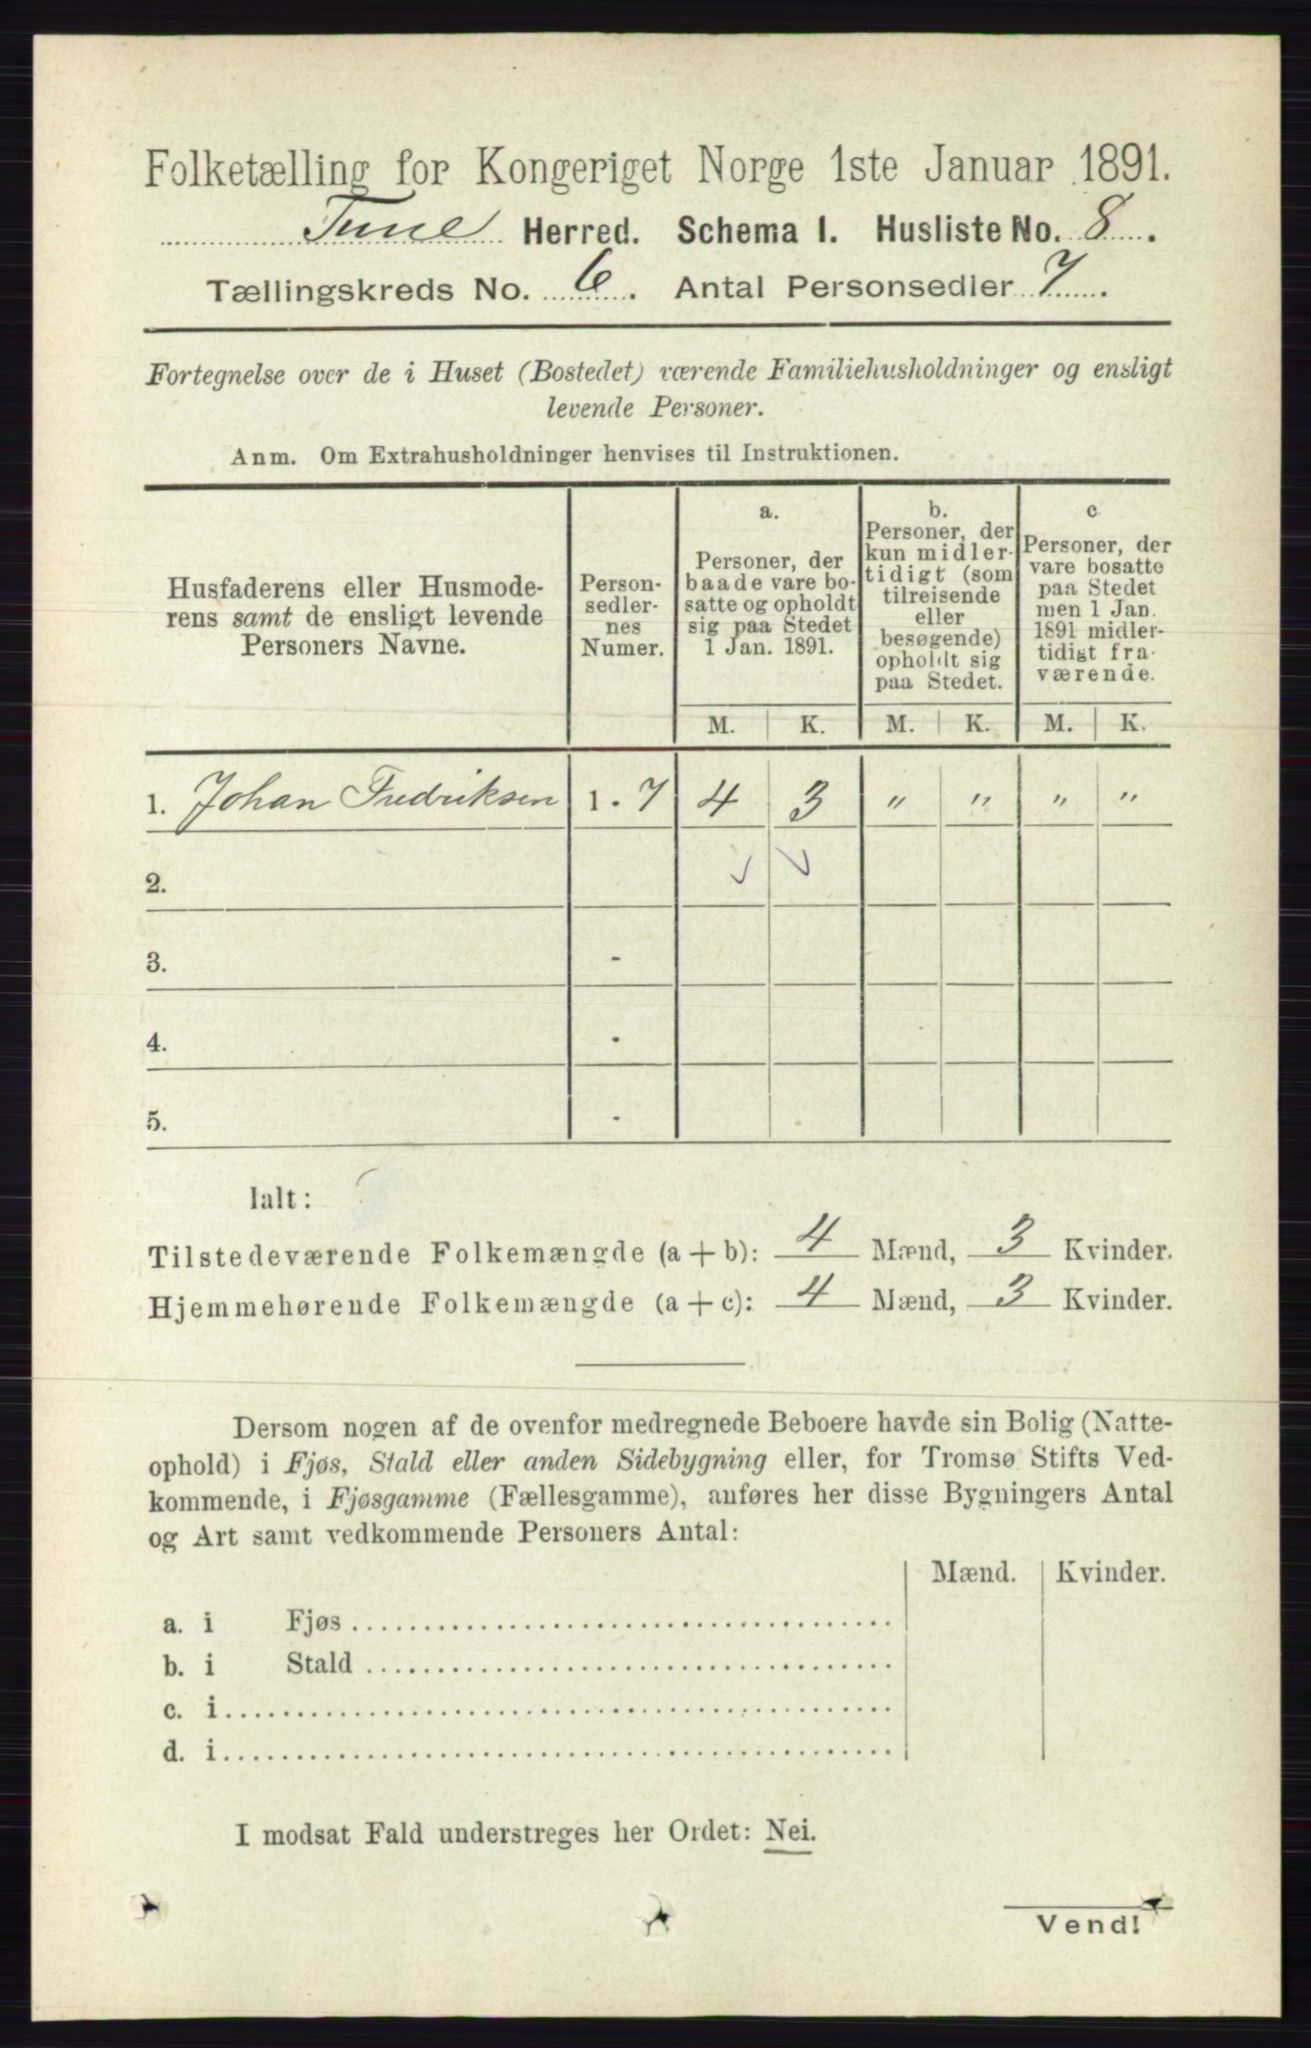 Folketælling for Kongeriget Norge 1ste Januar 1891.
Tune Herred. Schema 1. Husliste No. 8.
Tællingskreds No. 6. Antal Personsedler 7.
Fortegnelse over de i Huset (Bostedet) værende Familiehusholdninger og ensligt
levende Personer.
Anm. Om Extrahusholdninger henvises til Instruktionen.
Husfaderens eller Husmode-
rens samt de ensligt levende
Personers Navne.
Person-
sedler-
nes
Numer.
a.
Personer, der
baade vare bo-
satte og opholdt
sig paa Stedet
1 Jan. 1891.
b.
Personer, der
kun midler-
tidigt (som
tilreisende
eller
besøgende)
opholdt sig
paa Stedet.
c
Personer, der
vare bosatte
paa Stedet
men 1 Jan.
1891 midler-
tidigt fra-
værende.
M. K. M. K. M. K.
1. Johan Fredriksen 1 - 7 4 3 " " " "
2.
3. -
4. -
5. -
Ialt:
Tilstedeværende Folkemængde (a + b): 4 Mænd, 3 Kvinder.
Hjemmehørende Folkemængde (a + c): 4 Mænd, 3 Kvinder.
Dersom nogen af de ovenfor medregnede Beboere havde sin Bolig (Natte-
ophold) i Fjøs, Stald eller anden Sidebygning eller, for Tromsø Stifts Ved-
kommende, i Fjøsgamme (Fællesgamme), anføres her disse Bygningers Antal
og Art samt vedkommende Personers Antal:
Mænd. Kvinder.
a. i Fjøs
b. i Stald
c. i
d. i
I modsat Fald understreges her Ordet: Nei.
Vend!